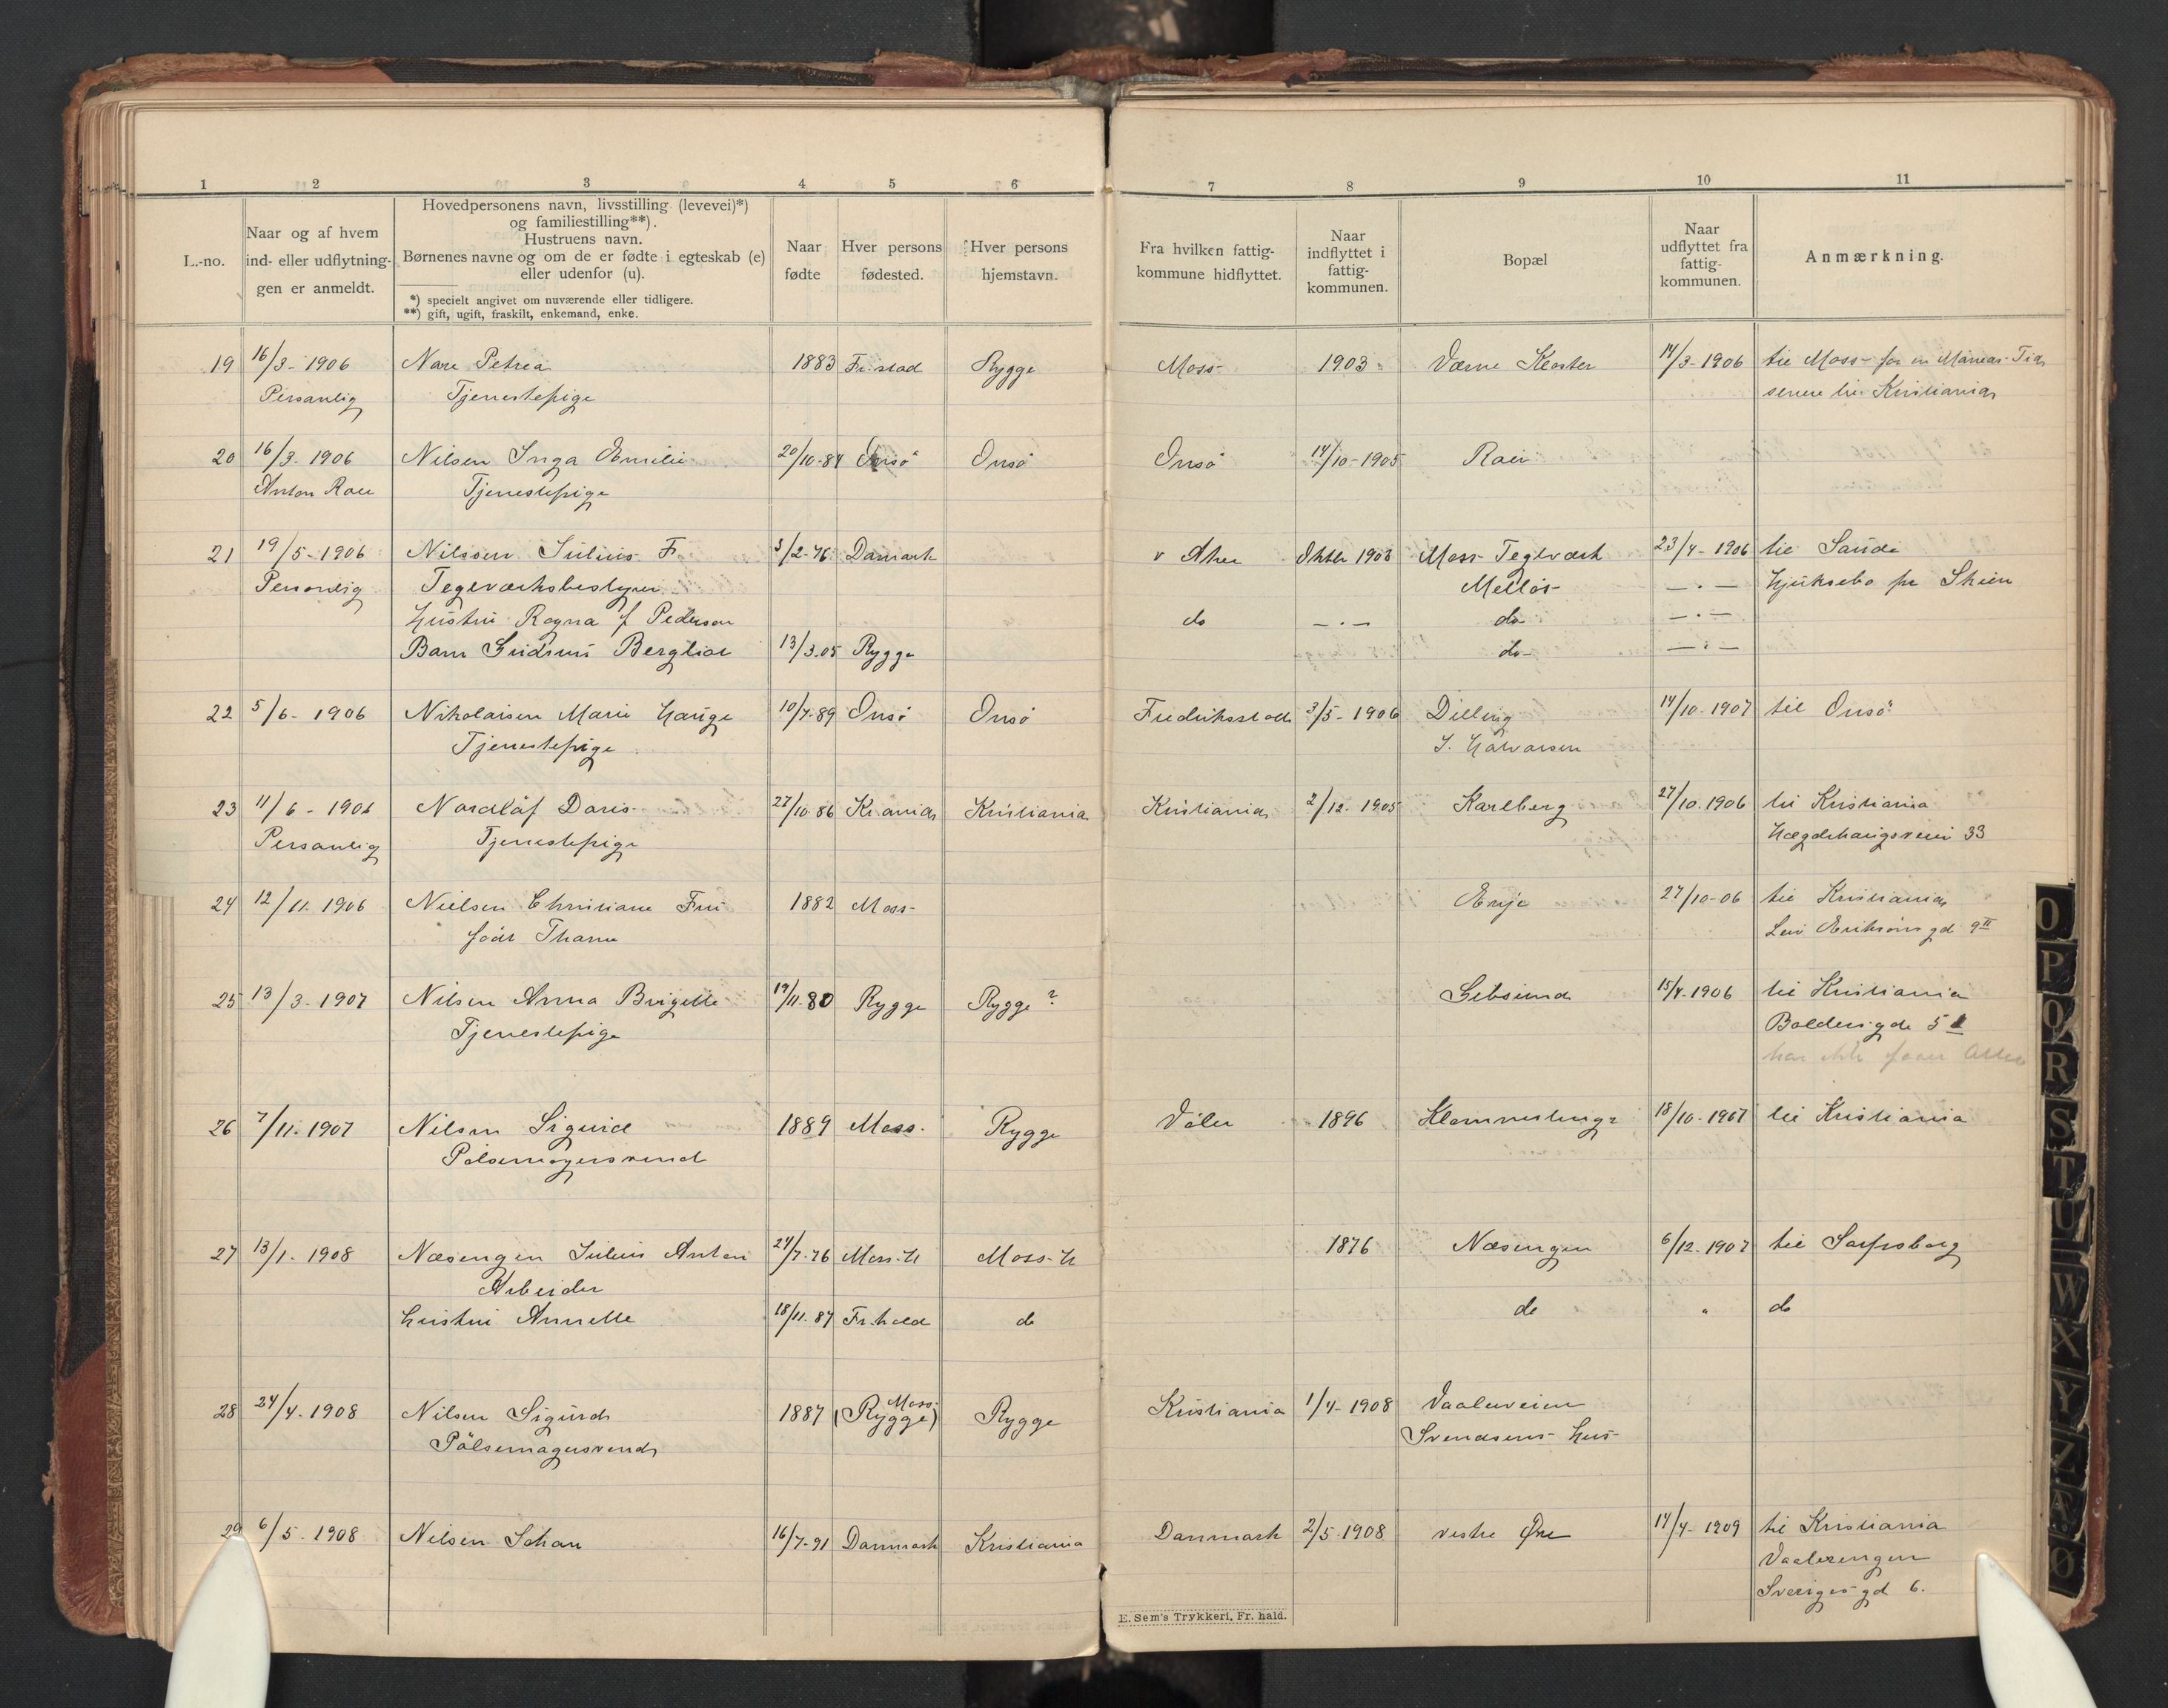 1 2 3 4 5 6 7 8 9 10 11
L.-no.
Naar og af hvem
ind- eller udflytnin-
gen er anmeldt.
Hovedpersonens navn, livsstilling (levevei)*)
og familiestilling**).
Hustruens navn.
Børnenes navne og om de er fødte i egteskab (e)
eller udenfor (u).
*) specielt angivet om nuværende eller tidligere.
**) gift, ugift, fraskilt, enkemand, enke.
Naar
fødte
Hver persons
fødested.
Hver persons
hjemstavn.
Fra hvilken fattig-
kommune hidflyttet.
Naar
indflyttet i
fattig-
kommunen.
Bopæl
Naar
udflyttet fra
fattig-
kommunen.
Anmærkning.
19 16/3- 1906 Nare Petrea 1883 Fr.stad Rygge Moss 1903 Værne Kloster 14/3-1906 til Moss for en Maaneds Tid
Personlig Tjenestepige senere til Kristiania
20 16/3-1906 Nilsen Inga Emilie 20/10-84 Onsö Onsö Onsö 14/10-1905 Roer
Anton Roer Tjenestepige
21 19/5-1906 Nilsson Julius F. 3/2-76 Danmark v Aker Oktbr 1903 Moss Teglværk 23/4-1906 til Saude
Personlig Teglværksbestyrer Melløs —·— Hjuksebo pr Skien
Hustru Ragna f Pedersen do —·— do —·—
Barn Gudrun Bergliot 13/3-05 Rygge do —·—
22 5/6-1906 Nikolaisen Marie Hauge 10/7-89 Onsö Onsö Fredriksstad 3/5-1906 Dilling 14/10-1907 til Onsö
Tjenestepige J. Halvorsen
23 11/6-1906 Nordlöf Doris 27/10-86 Kr.ania Kristiania Kristiania 2/12-1905 Karlberg 27/10.1906 til Kristiania
Personlig Tjenestepige Hægdehaugsveien 33
24 12/11-1906 Nielsen Christiane Fru 1882 Moss Evje 27/10-06 til Kristiania
född Thorne Leiv Eriksons gd 9 II
25 13/3-1907 Nilsen Anna Birgitte 19/11-80 Rygge Rygge? Gibsund 15/4-1906 til Kristiania
Tjenestepige Baldersgde 5
har ikke faaet Attest
26 7/11-1907 Nilsen Sigurd 1889 Moss Rygge Våler 1896 18/10-1907 til Kristiania
Pølsemagersvend
27 13/1-1908 Næsengen Julius Anton 24/7-76 Moss-H Moss-H 1876 Næsengen 6/12-1907 til Sarpsborg
Arbeider
Hustru Annette 18/11-87 Fr.hald do do " do
28 24/4-1908 Nilsen Sigurd 1887 Moss (Rygge) Rygge Kristiania 1/4-1908 Vaalerveien
Pölsemagersvend Svendsens Hus
29 6/5-1908 Nilsen Johan 16/7-91 Danmark Kristiania Danmark 2/5-1908 vestre Øre 14/4-1909 til Kristiania
Vaalerengen
Sveriges gd 6.
E. Sem's Trykkeri, Fr. hald.
O
P
Q
R
S
T
U
W
X
Y
Z
Æ
Ø